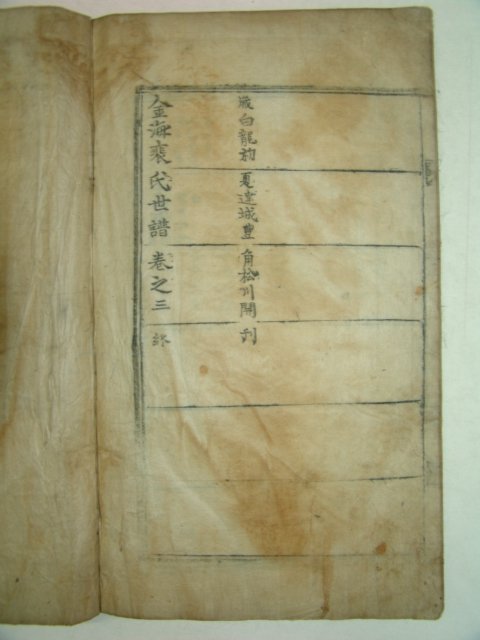 歲白龍初夏達城豊角松川開刊
金海裵氏世譜卷之三 終